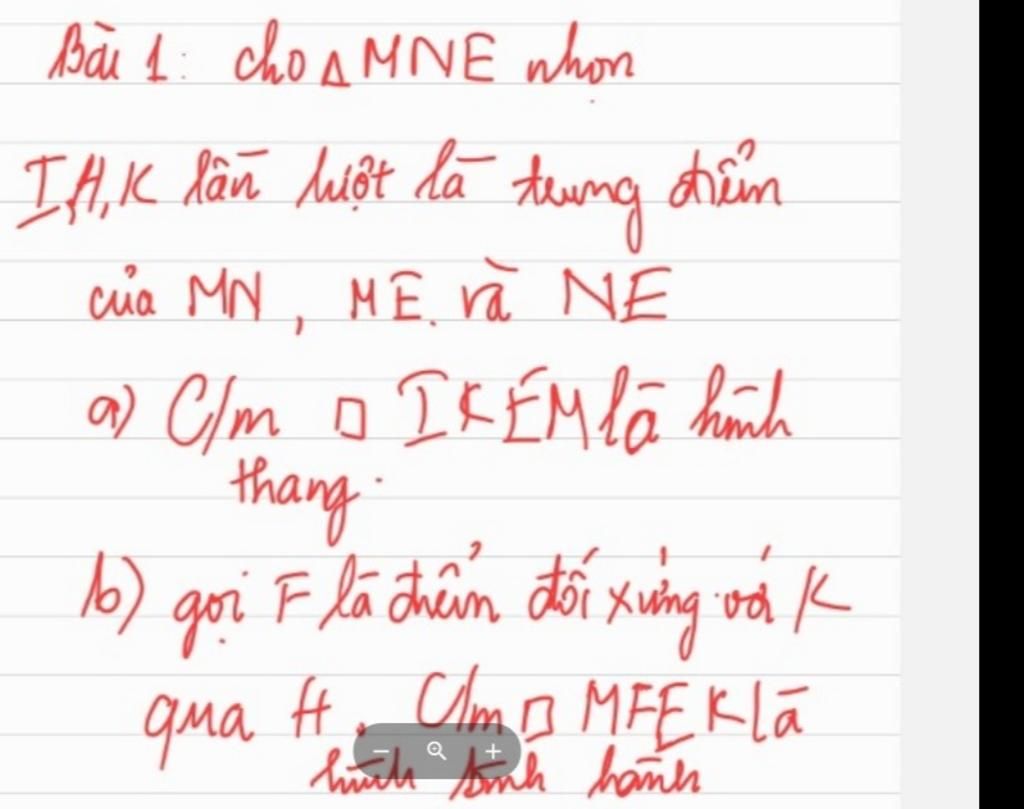 Bài 1: cho Δ MNE nhọn
I,H,K lần lượt là trung điểm
của MN, ME và NE
a) C/m □ IKEM là hình
thang.
b) gọi F là điểm đối xứng với K
qua H. C/m □ MFEK là
hình bình hành